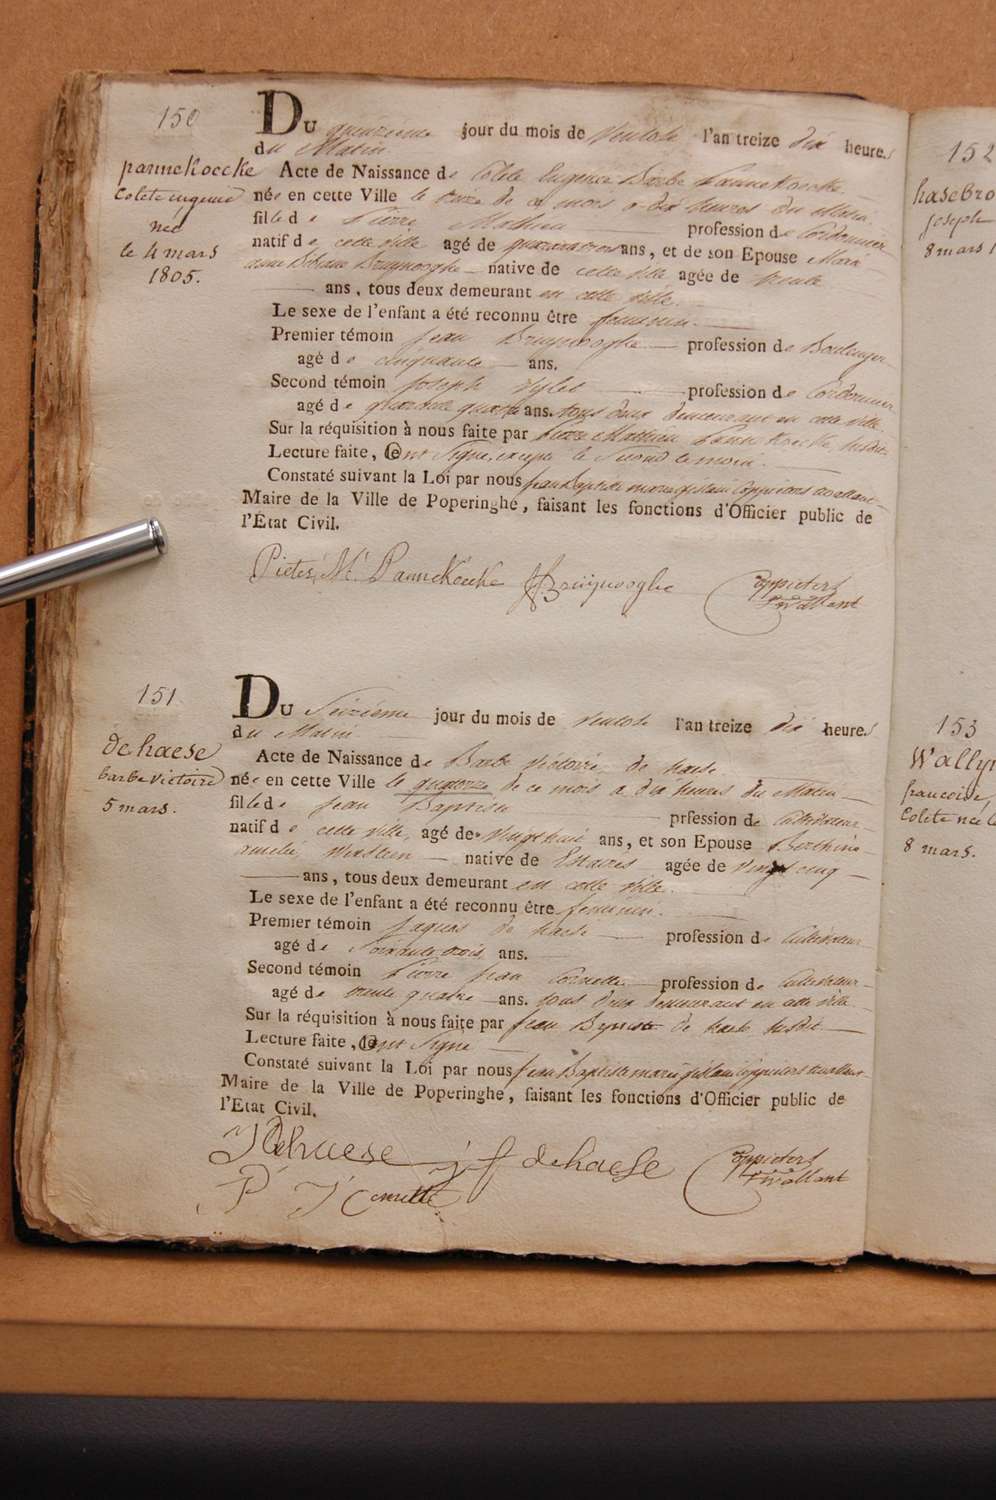 150
pannekoecke
Colete eugenie
née
le 4 mars
1805.
Du quinzieme jour du mois de Ventose l'an treize dix heures
du Matin
Acte de Naissance de Colete Eugenie Barbe Pannekoecke
née en cette Ville le treize de ce mois a dix heures du Matin
fille de Pierre Mathieu profession de Cordonnier
natif de cette ville agé de quarante trois ans, et de son Epouse Marie
anne Barbe Bruynooghe native de cette ville agée de trente
ans, tous deux demeurant en cette ville.
Le sexe de l'enfant a été reconnu être feminin.
Premier témoin Jean Bruynooghe profession de Boulenger
agé de cinquante ans.
Second témoin Joseph profession de Cordonnier
agé de quarante quatre ans. tous deux demeurant en cette ville.
Sur la réquisition à nous faite par Pierre Mathieu Pannekoecke susdit
Lecture faite, ont Signé, excepté le Second temoin.
Constaté suivant la Loi par nous Jean Baptiste marie ghislain Coppieters
Maire de la Ville de Poperinghe, faisant les fonctions d'Officier public de
l'Etat Civil.
Pieter M. PanneKoecke JBruynooghe Coppieters
t'wallant
151
de haese
barbe victoire
5 mars.
Du Seizieme jour du mois de Ventose l'an treize dix heures
du Matin
Acte de Naissance de Barbe Victoire de haese
née en cette Ville le quatorze de ce mois a dix heures du Matin
fille de Jean Baptiste prfession de Cultivateur
natif de cette ville, agé de vingt huit ans, et son Epouse Berthine
amelie native de Estaires agée de vingt cinq
ans, tous deux demeurant en cette ville.
Le sexe de l'enfant a été reconnu être feminin.
Premier témoin Jaques de haese profession de Cultivateur
agé de Soixante trois ans.
Second témoin Pierre Jean Cornette profession de Cultivateur
agé de trente quatre ans. tous deux demeurant en cette ville
Sur la réquisition à nous faite par Jean Baptiste de haese susdit
Lecture faite, ont Signé
Constaté suivant la Loi par nous Jean Baptiste marie ghislain Coppieters
Maire de la Ville de Poperinghe, faisant les fonctions d'Officier public de
l'Etat Civil.
J Dehaese j f dehaese Coppieters
t'wallant
P J Cornette
152
hasebro
joseph
8 mars 1
153
Wallyn
francoise,
Colete née l
8 mars.